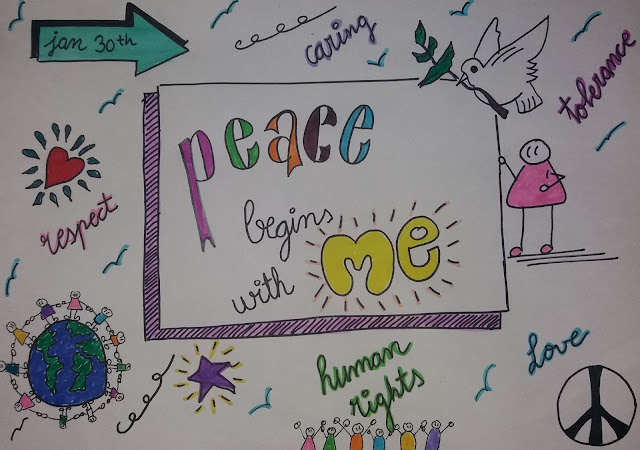 jan 30th
caring
tolerance
peace
begins
with me
respect
human
rights
Love